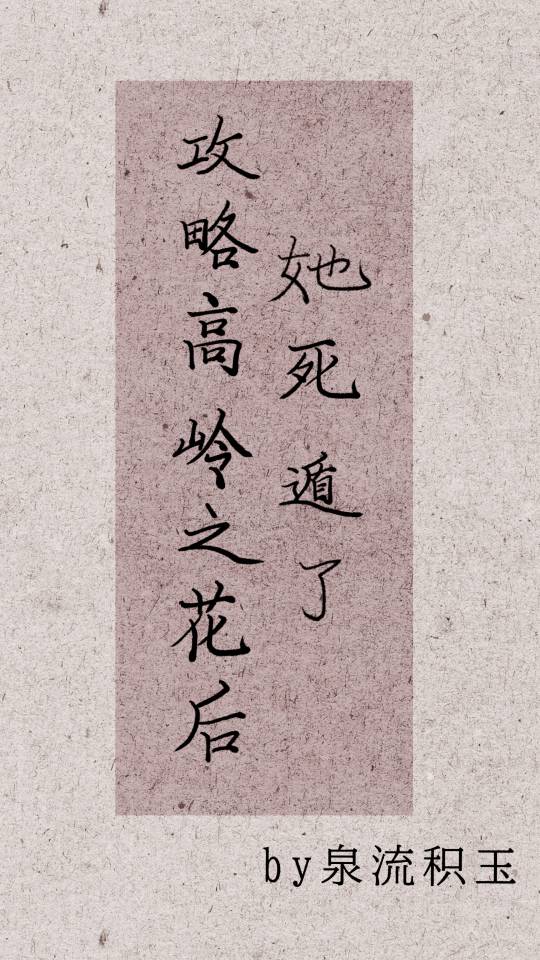 攻略高岭之花后
她死遁了
by泉流积玉